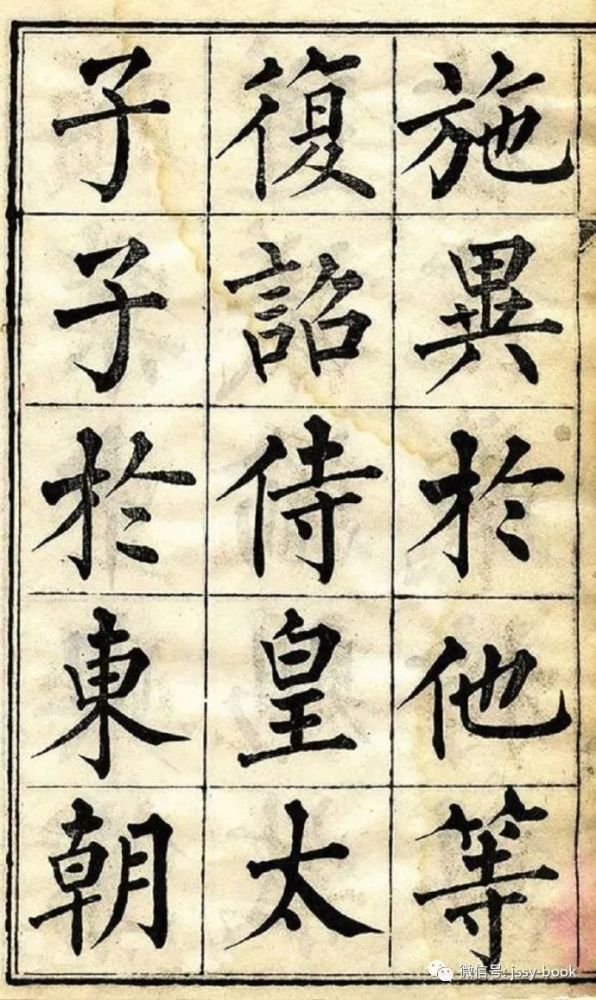 施異於他等
復詔侍皇太
子子於東朝
微信号: jssy-book